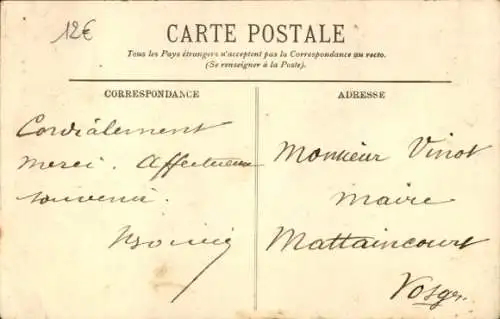 12€
CARTE POSTALE
Tous les Pays étrangers n'acceptent pas la Correspondance au recto.
(Se renseigner à la Poste).
CORRESPONDANCE
ADRESSE
Cordialement
merci. Affectueux
souvenir.
Monsieur Vinot
Maire
Mattaincourt
Vosges.